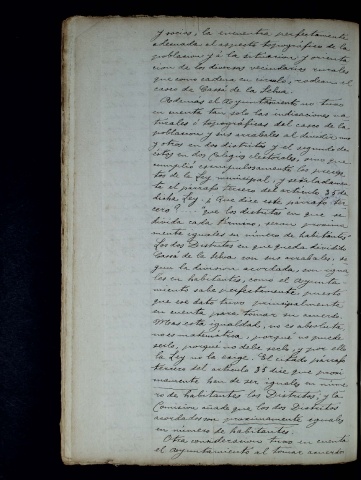 y socios, la encuentra perfectamente
adecuada al aspecto topográfico de la
poblacion y á la situacion y orienta-
cion de los diversos vecindarios rurales
que como cadena en círculo, rodean el
casco de Cassá de la Selva.
Además el Ayuntamiento no tuvo
en cuenta tan solo las indicaciones na-
turales ó topográficas del casco de la
poblacion y sus arrabales al dividir uno
y otros en dos distritos y el segundo de
estos en dos Colegios electorales, sino que
cumplió escrupulosamente los precep-
tos de la Ley municipal, y señaladamen-
te el párrafo tercero del artículo 35 de
dicha Ley. ¿Que dice este párrafo ter-
cero? "que los distritos en que se
divida cada término, sean próxima-
mente iguales en número de habitantes."
Los dos Distritos en que queda dividido
Cassá de la Selva con sus arrabales, se-
gun la division acordada, son igua-
les en habitantes, como el Ayunta-
miento sabe perfectamente puesto
que ese dato tuvo principalmente
en cuenta para tomar su acuerdo.
Mas esta igualdad, no es absoluta,
no es matemática, porque no puede
serlo, porque no debe serlo, y por ello
la Ley no la exige. El citado párrafo
tercero del artículo 35 dice que proxi-
mamente han de ser iguales en núme-
ro de habitantes los Distritos, y la
Comision añade que los dos Distritos
acordados son proximamente iguales
en número de habitantes.
Otra consideracion tuvo en cuenta
el Ayuntamiento al tomar acuerdo